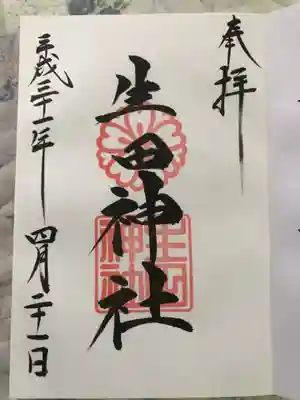 奉拝
生田神社
生田神社
平成三十一年四月二十一日